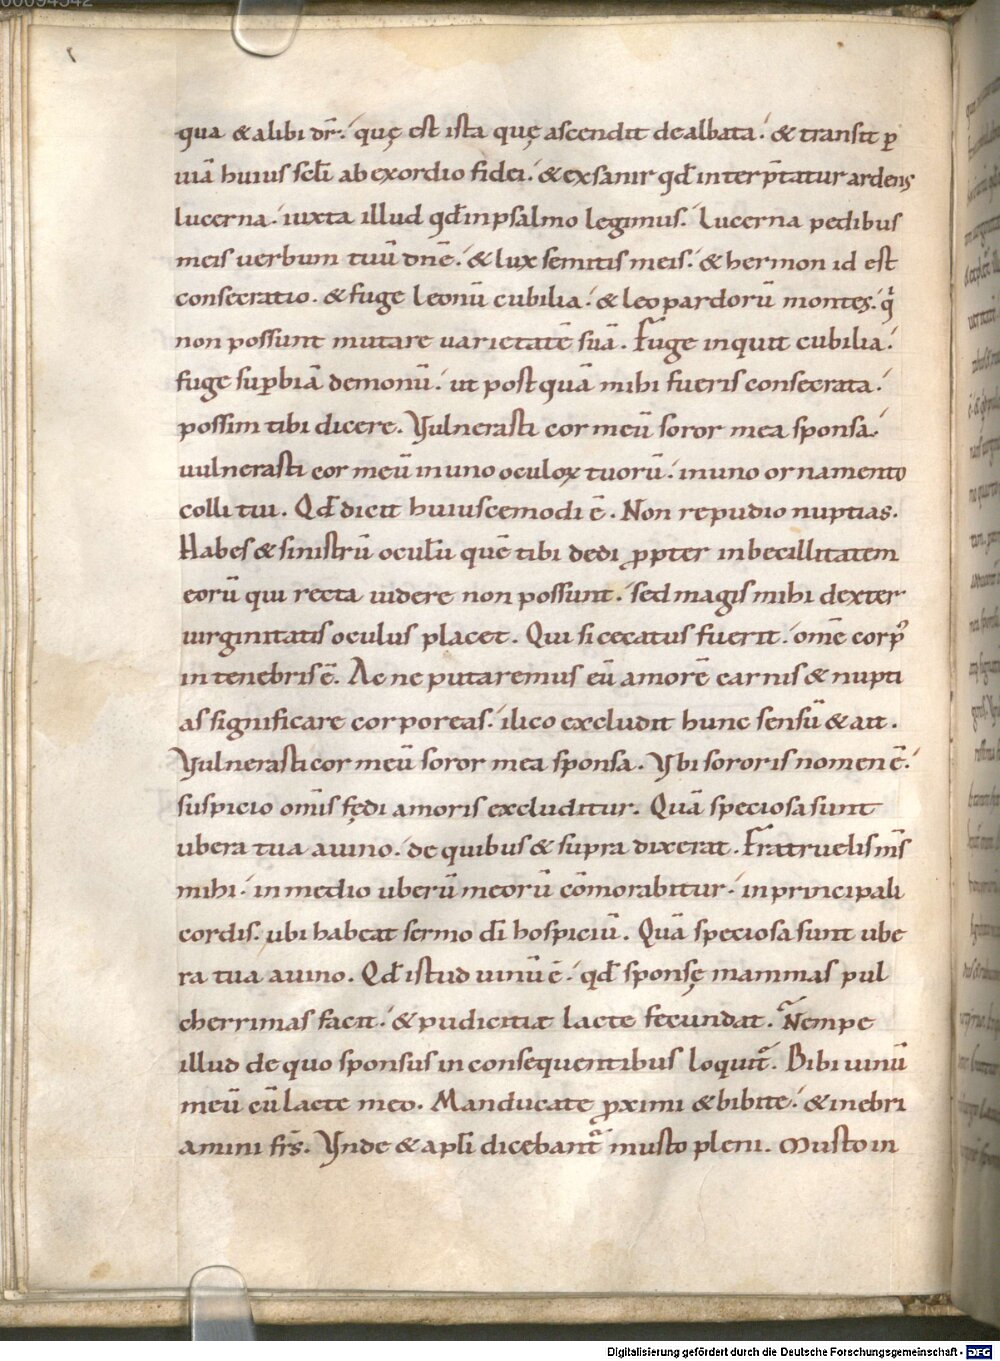 00094542
qua & alibi dr̄. quę est ista quę ascendit dealbata. & transit ꝑ
uiā huius scłi ab exordio fidei. & exsanir qđ interp̄tatur ardens
lucerna. iuxta illud qđ in psalmo legimus. Lucerna pedibus
meis uerbum tuū dn̄e. & lux semitis meis. & hermon id est
consecratio. & fuge leonū cubilia. & leopardorū montes. qͣ
non possunt mutare uarietatē suā. Fuge inquit cubilia.
fuge suꝑbiā demonū. ut postquā mihi fueris consecrata.
possim tibi dicere. Vulnerasti cor meū soror mea sponsa.
uulnerasti cor meū in uno oculoꝝ tuorū. in uno ornamento
colli tui. Qđ dicit huiuscemodi ē. Non repudio nuptias.
Habes & sinistrū oculū quē tibi dedi ꝓpter inbecillitatem
eorū qui recta uidere non possunt. sed magis mihi dexter
uirginitatis oculus placet. Qui si cecatus fuerit. omē corpꝰ
in tenebris ē. Ac ne putaremus eū amorē carnis & nupti
as significare corporeas. ilico excludit hunc sensū & ait.
Vulnerasti cor meū soror mea sponsa. Vbi sororis nomen ē.
suspicio omīs fędi amoris excluditur. Quā speciosa sunt
ubera tua a uino. de quibus & supra dixerat. Fratruelis m̄s
mihi. in medio uberū meorū cōmorabitur. in principali
cordis. ubi habeat sermo dī hospiciū. Quā speciosa sunt ube
ra tua a uino. Qđ istud uinū ē. qđ sponsę mammas pul
cherrimas facit. & pudicitiæ lacte fecundat. Nempe
illud de quo sponsus in consequentibus loquit᷑. Bibi uinū
meū cū lacte meo. Manducate ꝓximi & bibite. & inebri
amini fr̄s. Vnde & apłi dicebant᷑ musto pleni. Musto in
Digitalisierung gefördert durch die Deutsche Forschungsgemeinschaft - DFG